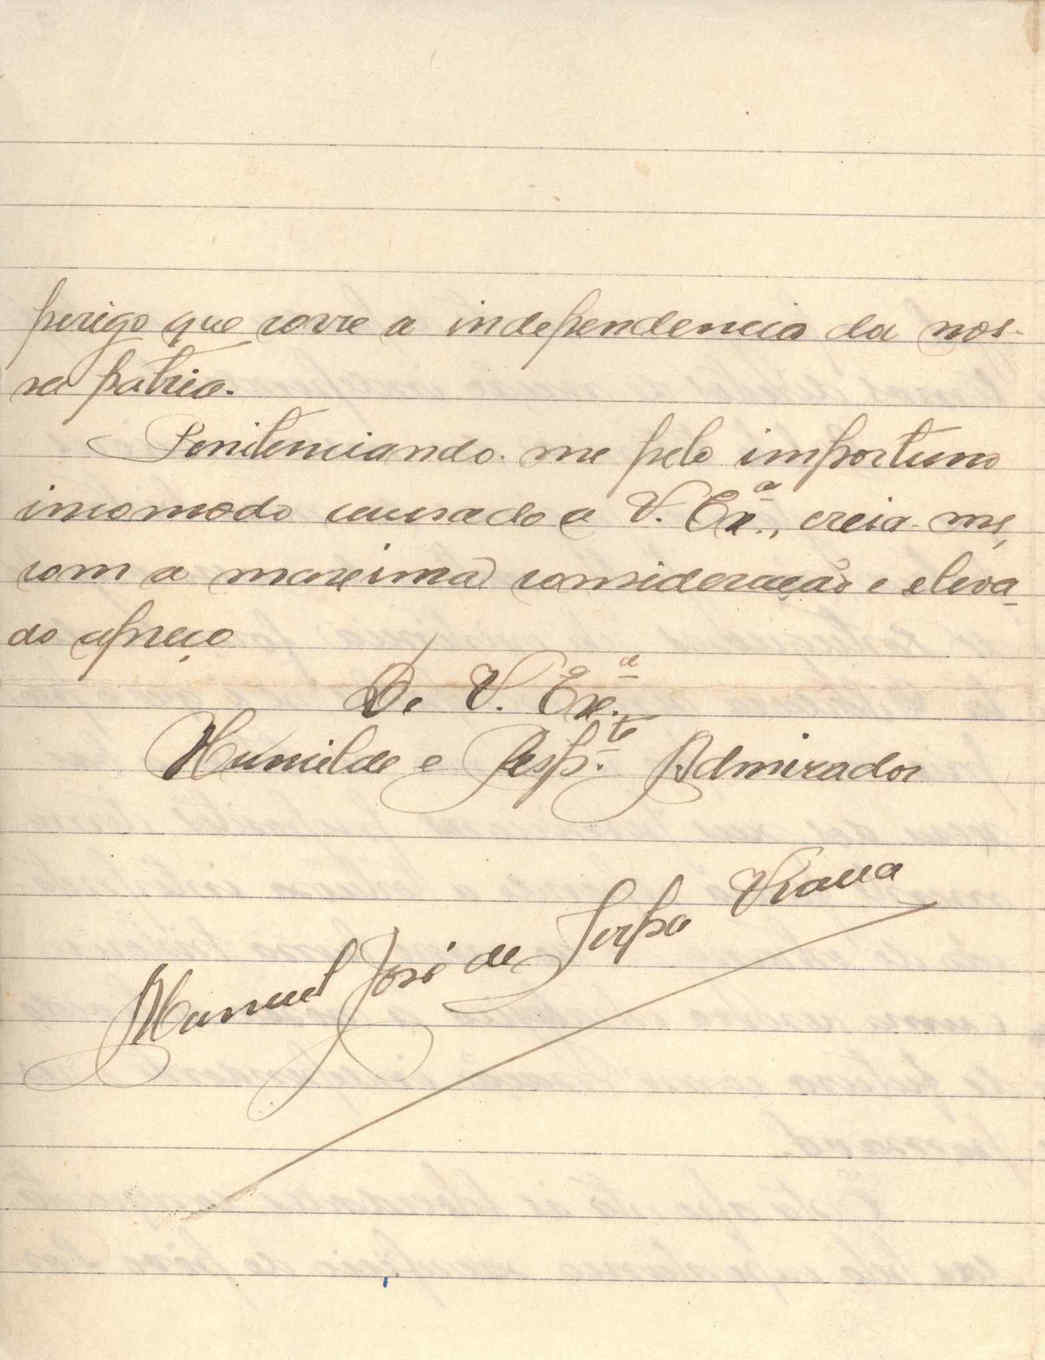 perigo que corre a independencia da nos-
sa patria.
Penitenciando-me pelo importuno
incomodo causado a V. Exª., creia-me,
com a maxima consideração e eleva-
do apreço
De V. Exª.
Humilde e Respᵗᵒ. Admirador
Manuel José de Serpa Viana